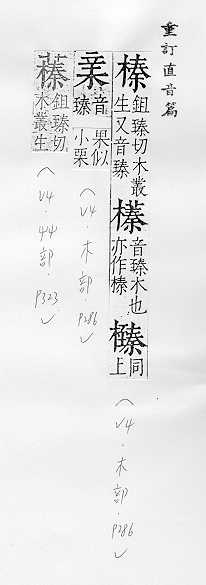 重訂直音篇
榛
鉏臻切木叢
生又音臻
音臻木也
亦作榛
同上
(V4·木部·P286)✓
音臻
果似小栗
(V4·木部·P286)✓
鉏臻切
木叢生
(V4·艸部·P323)✓